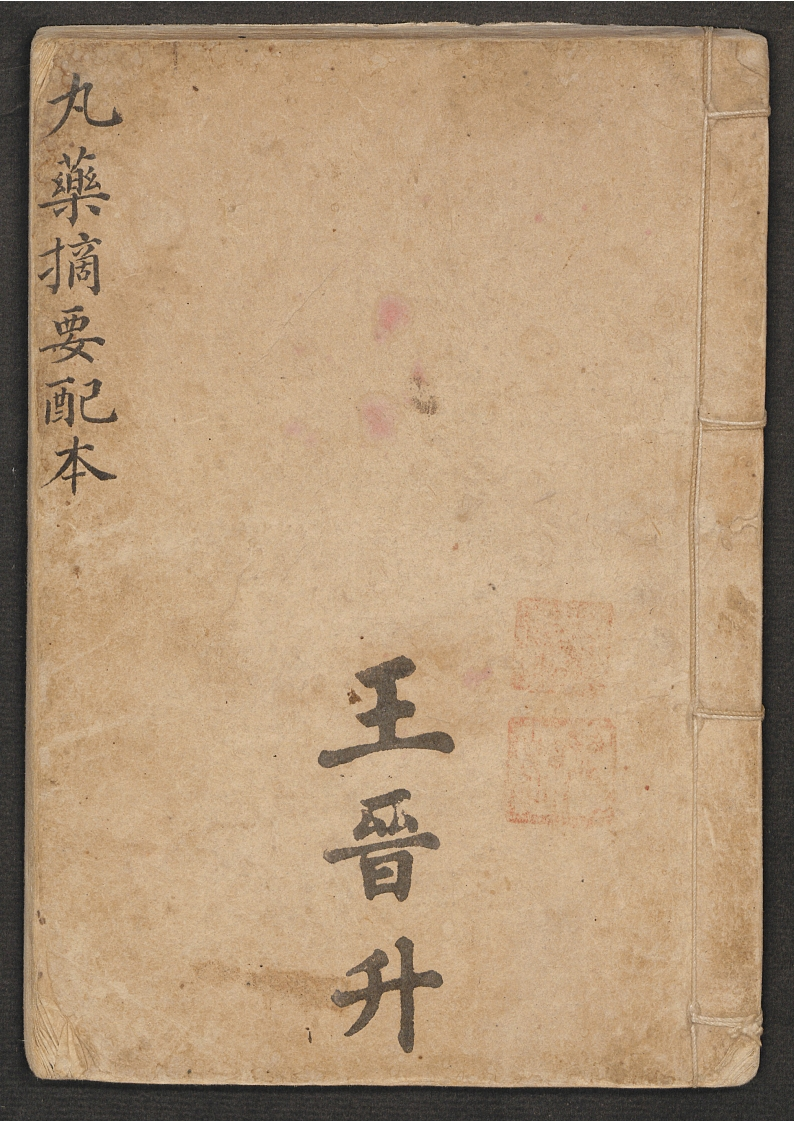 丸藥摘要配本
王晉升